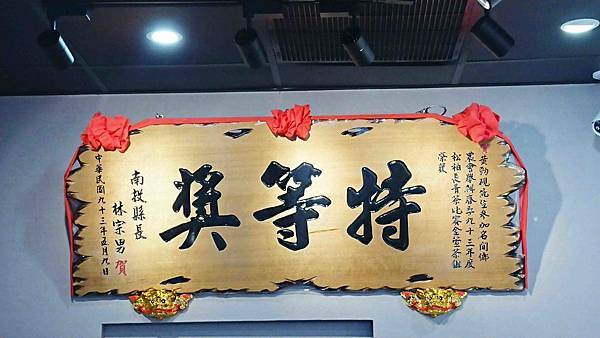 黃勁硯先生參加名間鄉
農會舉辦春季九十三年度
松柏長青茶比賽金萱茶組
榮獲
特等獎
南投縣長
林宗男 賀
中華民國九十三年五月九日